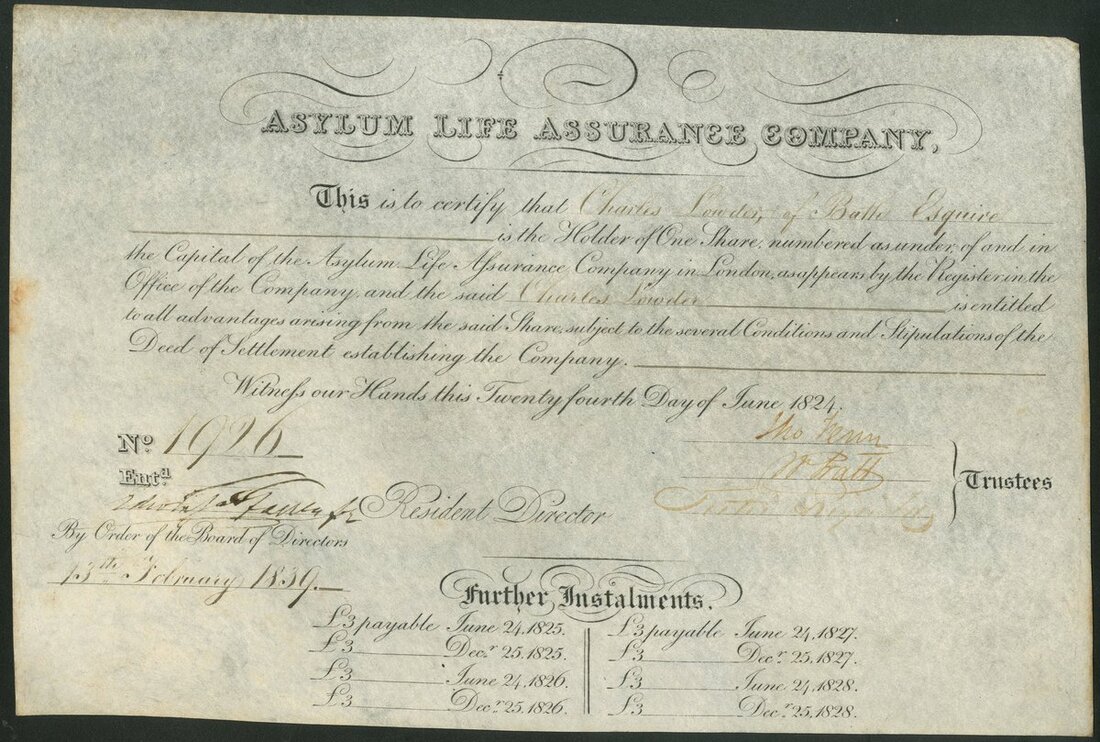 ASYLUM LIFE ASSURANCE COMPANY,
This is to certify that Charles Lowder, of Bath Esquire
is the Holder of One Share, numbered as under, of and in
the Capital of the Asylum Life Aſsurance Company in London, as appears by the Register in the
Office of the Company, and the said Charles Lowder is entitled
to all advantages arising from the said Share, subject to the several Conditions and Stipulations of the
Deed of Settlement establishing the Company.
Witneſs our Hands this Twenty fourth Day of June 1824.
No. 1926
Entd.
Trustees
Resident Director
By Order of the Board of Directors
13th February 1839.
Further Instalments.
£3 payable June 24, 1825.
£3 Decr. 25, 1825.
£3 June 24, 1826.
£3 Decr. 25, 1826.
£3 payable June 24, 1827.
£3 Decr. 25, 1827.
£3 June 24, 1828.
£3 Decr. 25, 1828.